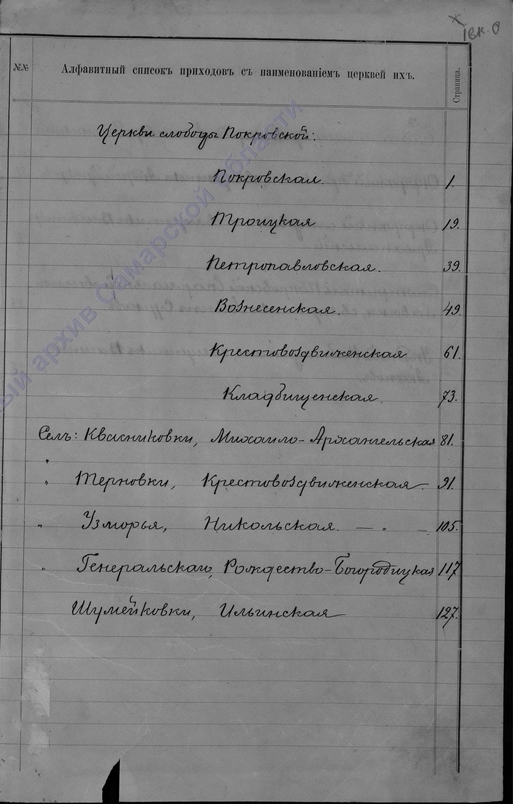 №№ Алфавитный списокъ приходовъ съ наименованіемъ церквей ихъ. Страница.
Церкви слободы Покровской:
Покровская. 1.
Троицкая 19.
Петропавловская. 39.
Вознесенская. 49.
Крестовоздвиженская 61.
Кладбищенская. 73.
Селъ: Квасниковки, Михаило-Архангельская 81.
" Терновки, Крестовоздвиженская. 91.
" Узморья, Никольская. — " — 105.
" Генеральскаго, Рождество-Богородицкая 117
Шумейковки, Ильинская 127.
архив Самарской области